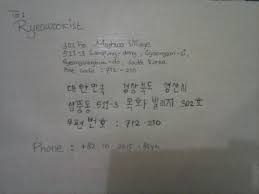 To:
Ryeowookist
302 Ho Moghwa Village
511-3 Sampung-dong, Gyeongsan-si,
Gyeongsangbuk-do, South Korea
Post code : 712-210
대한민국 경상북도 경산시
삼풍동 511-3 목화빌리지 302호
우편번호 : 712-210
Phone : +82 10